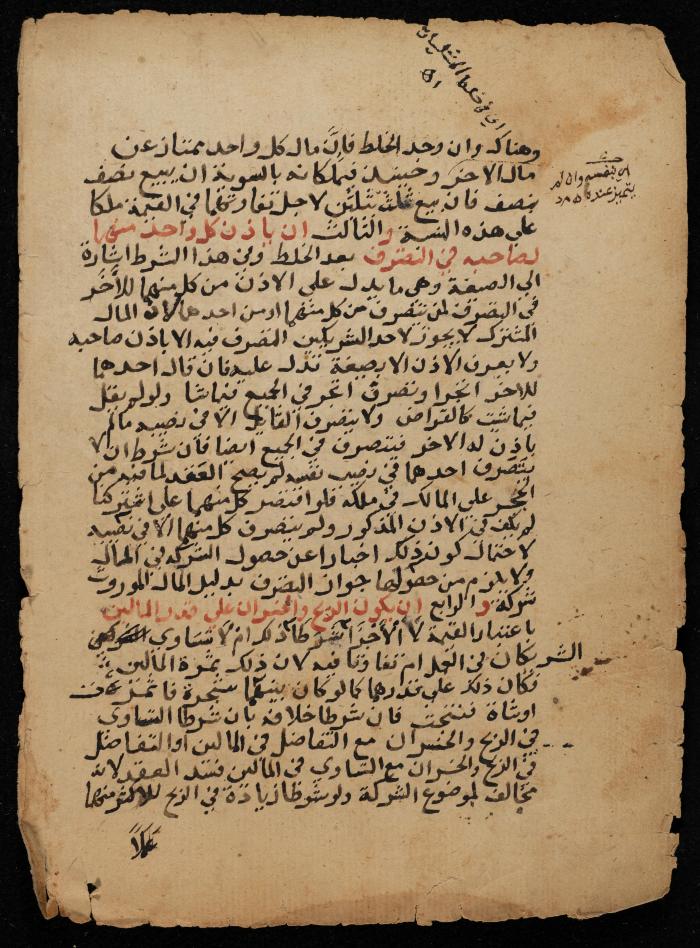 اي في خلط المثليان
اه
وهناك وان وجد الخلط فان مال كل واحد ممتاز عن
مال الاخر وحينئذ فيملكانه بالسوية ان بيع نصف
بنصف فان بيع ثلث بثلثين لاجل تفاوتهما في القيمة ملكا
على هذه النسبة والثالث ان ياذن كل واحد منهما
لصاحبه في التصرف بعد الخلط وفي هذا الشرط اشارة
الي الصيغة وهي ما يدل على الاذن من كل منهما للآخر
في التصرف لمن يتصرف من كل منهما او من احدهما لان المال
المشترك لا يجوز لاحد الشريكين التصرف فيه الا باذن صاحبه
ولا يعرف الاذن الا بصيغة تدل عليه فان قال احدهما
للاخر اتجر او تصرف اتجر في الجميع فيما شا ولو لم يقل
فيما شئت كالقراض ولا يتصرف القايل الا في نصيبه مالم
ياذن له الاخر فيتصرف في الجميع ايضا فان شرط ان لا
يتصرف احدهما في نصيب نفسه لم يصح العقد لما فيه من
الحجر على المالك في ملكه فلو اقتصر كل منهما على اشتركنا
لم يكف في الاذن المذكور ولم يتصرف كل منهما الا في نصيبه
لاحتمال كون ذلك اخبارا عن حصول الشركة في المال
ولا يلزم من حصولها جواز التصرف بدليل المال الموروث
شركة والرابع ان يكون الربح والخسران على قدر المالين
باعتبار القيمة لا الاجزآ شرطا ذلك ام لا تساوى
الشريكان في العمل ام تفاوتا فيه لان ذلك ثمرة المالين
فكان ذلك على قدرهما كما لو كان بينهما شجرة فاثمرت
او شاة فنتجت فان شرطا خلافه بان شرطا التساوي
في الربح والخسران مع التفاضل في المالين او التفاضل
في الربح والخسران مع التساوي في المالين فسد العقد لانه
مخالف لموضوع الشركة ولو شرطا زيادة في الربح للاكثر منهما
عملاً